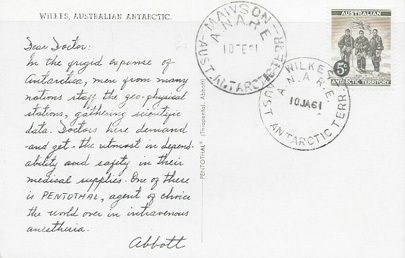 WILKES, AUSTRALIAN ANTARCTIC.
Dear Doctor:
In the frigid expanse of
Antarctica, men from many
nations staff the geo-physical
stations, gathering scientific
data. Doctors here demand
-and get- the utmost in depend-
ability and safety in their
medical supplies. One of these
is PENTOTHAL, agent of choice
the world over in intravenous
anesthesia.
Abbott
PENTOTHAL® (Thiopental, Abbott)
MAWSON
A.N.A.R.E.
10 FE 61
AUST. ANTARCTIC TERR.
WILKES
A.N.A.R.E.
10 JA 61
AUST. ANTARCTIC TERR.
AUSTRALIAN
5D
ANTARCTIC TERRITORY